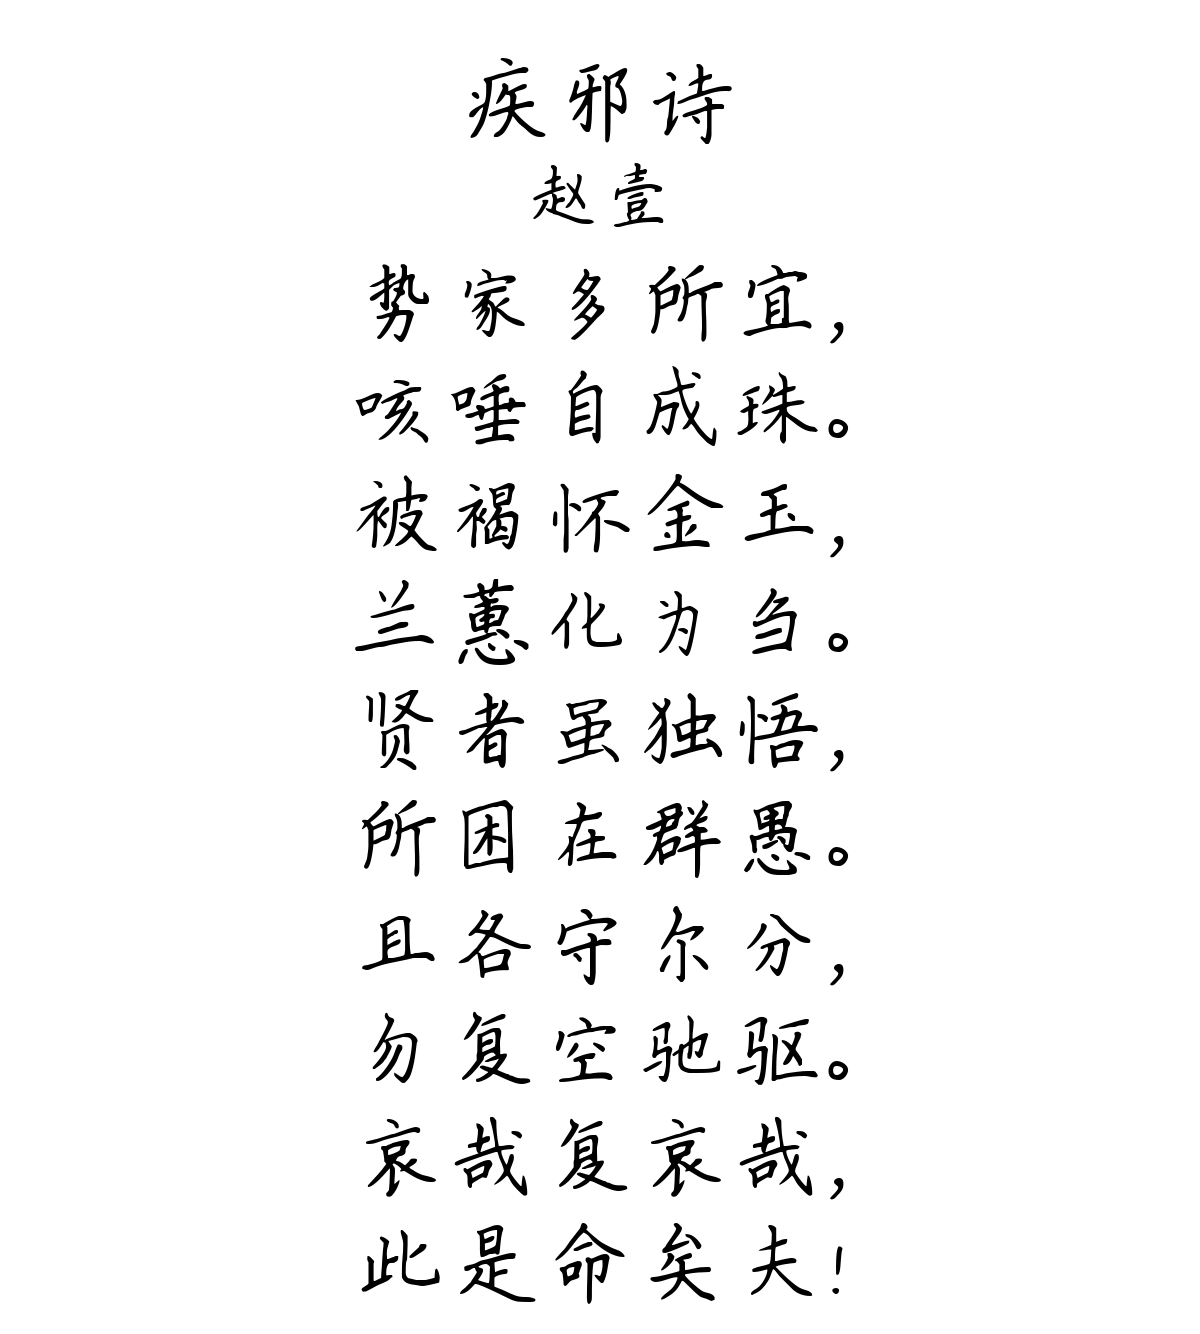 疾邪诗
赵壹
势家多所宜，
咳唾自成珠。
被褐怀金玉，
兰蕙化为刍。
贤者虽独悟，
所困在群愚。
且各守尔分，
勿复空驰驱。
哀哉复哀哉，
此是命矣夫！